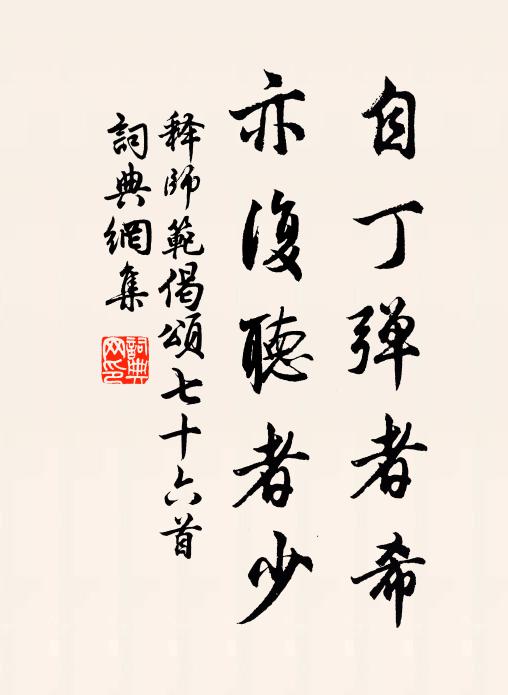 自丁弹者希
亦復聽者少
释師範偈頌七十六首
詞典網集
詞典網印